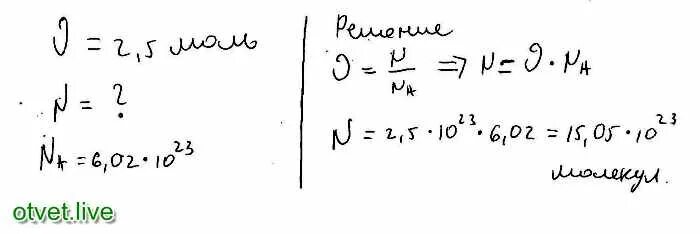 ϑ = 2,5 моль
N = ?
N_A = 6,02 · 10^23
Решение
ϑ = N/N_A ⇒ N = ϑ · N_A
N = 2,5 · 10^23 · 6,02 = 15,05 · 10^23
молекул.
otvet.live